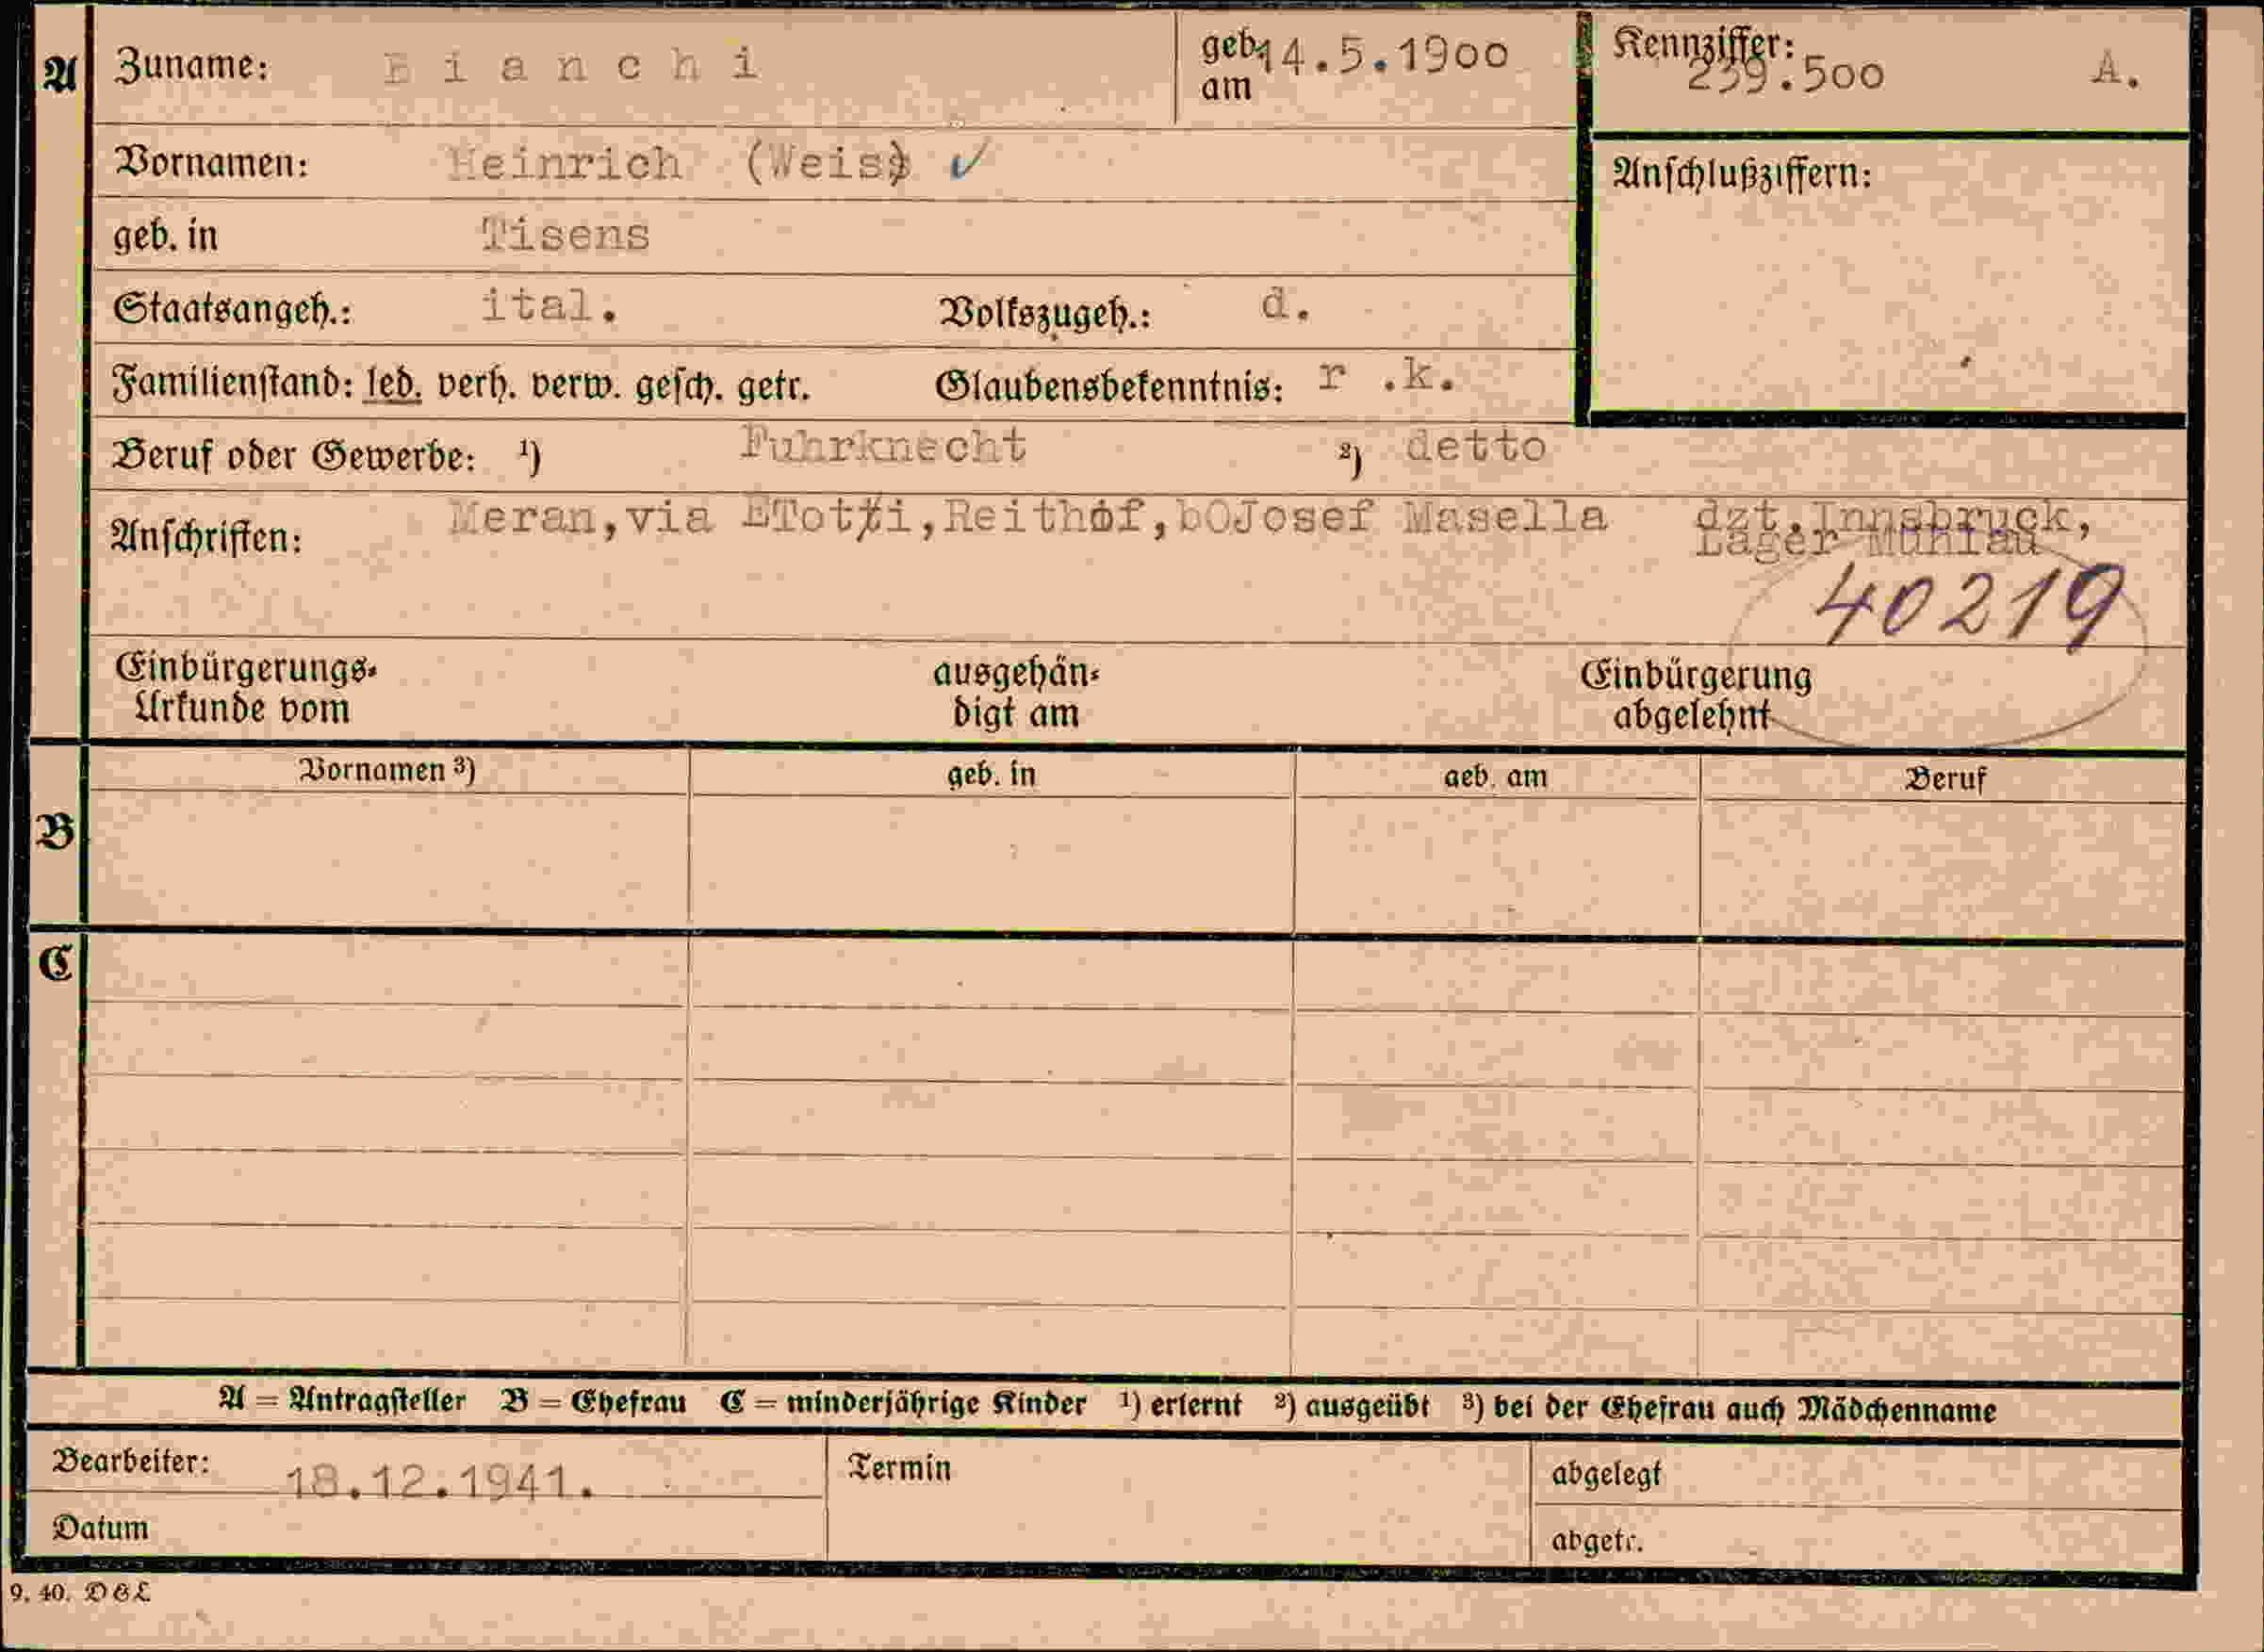 A Zuname: Bianchi geb. am 14.5.1900 Kennziffer: 239.500 A.
Vornamen: Heinrich (Weis) ✓ Anschlußziffern:
geb. in Tisens
Staatsangeh.: ital. Volkszugeh.: d.
Familienstand: led. verh. verw. gesch. getr. Glaubensbekenntnis: r .k.
Beruf oder Gewerbe: ¹) Fuhrknecht ²) detto
Anschriften: Meran,via ETotti,Reithof,bOJosef Masella dzt.Innsbruck,
Lager Mühlau
40219
Einbürgerungs- ausgehän- Einbürgerung
Urkunde vom digt am abgelehnt
Vornamen ³) geb. in geb. am Beruf
B
C
A = Antragsteller B = Ehefrau C = minderjährige Kinder ¹) erlernt ²) ausgeübt ³) bei der Ehefrau auch Mädchenname
Bearbeiter: 18.12.1941. Termin abgelegt
Datum abgetr.
9. 40. DGL